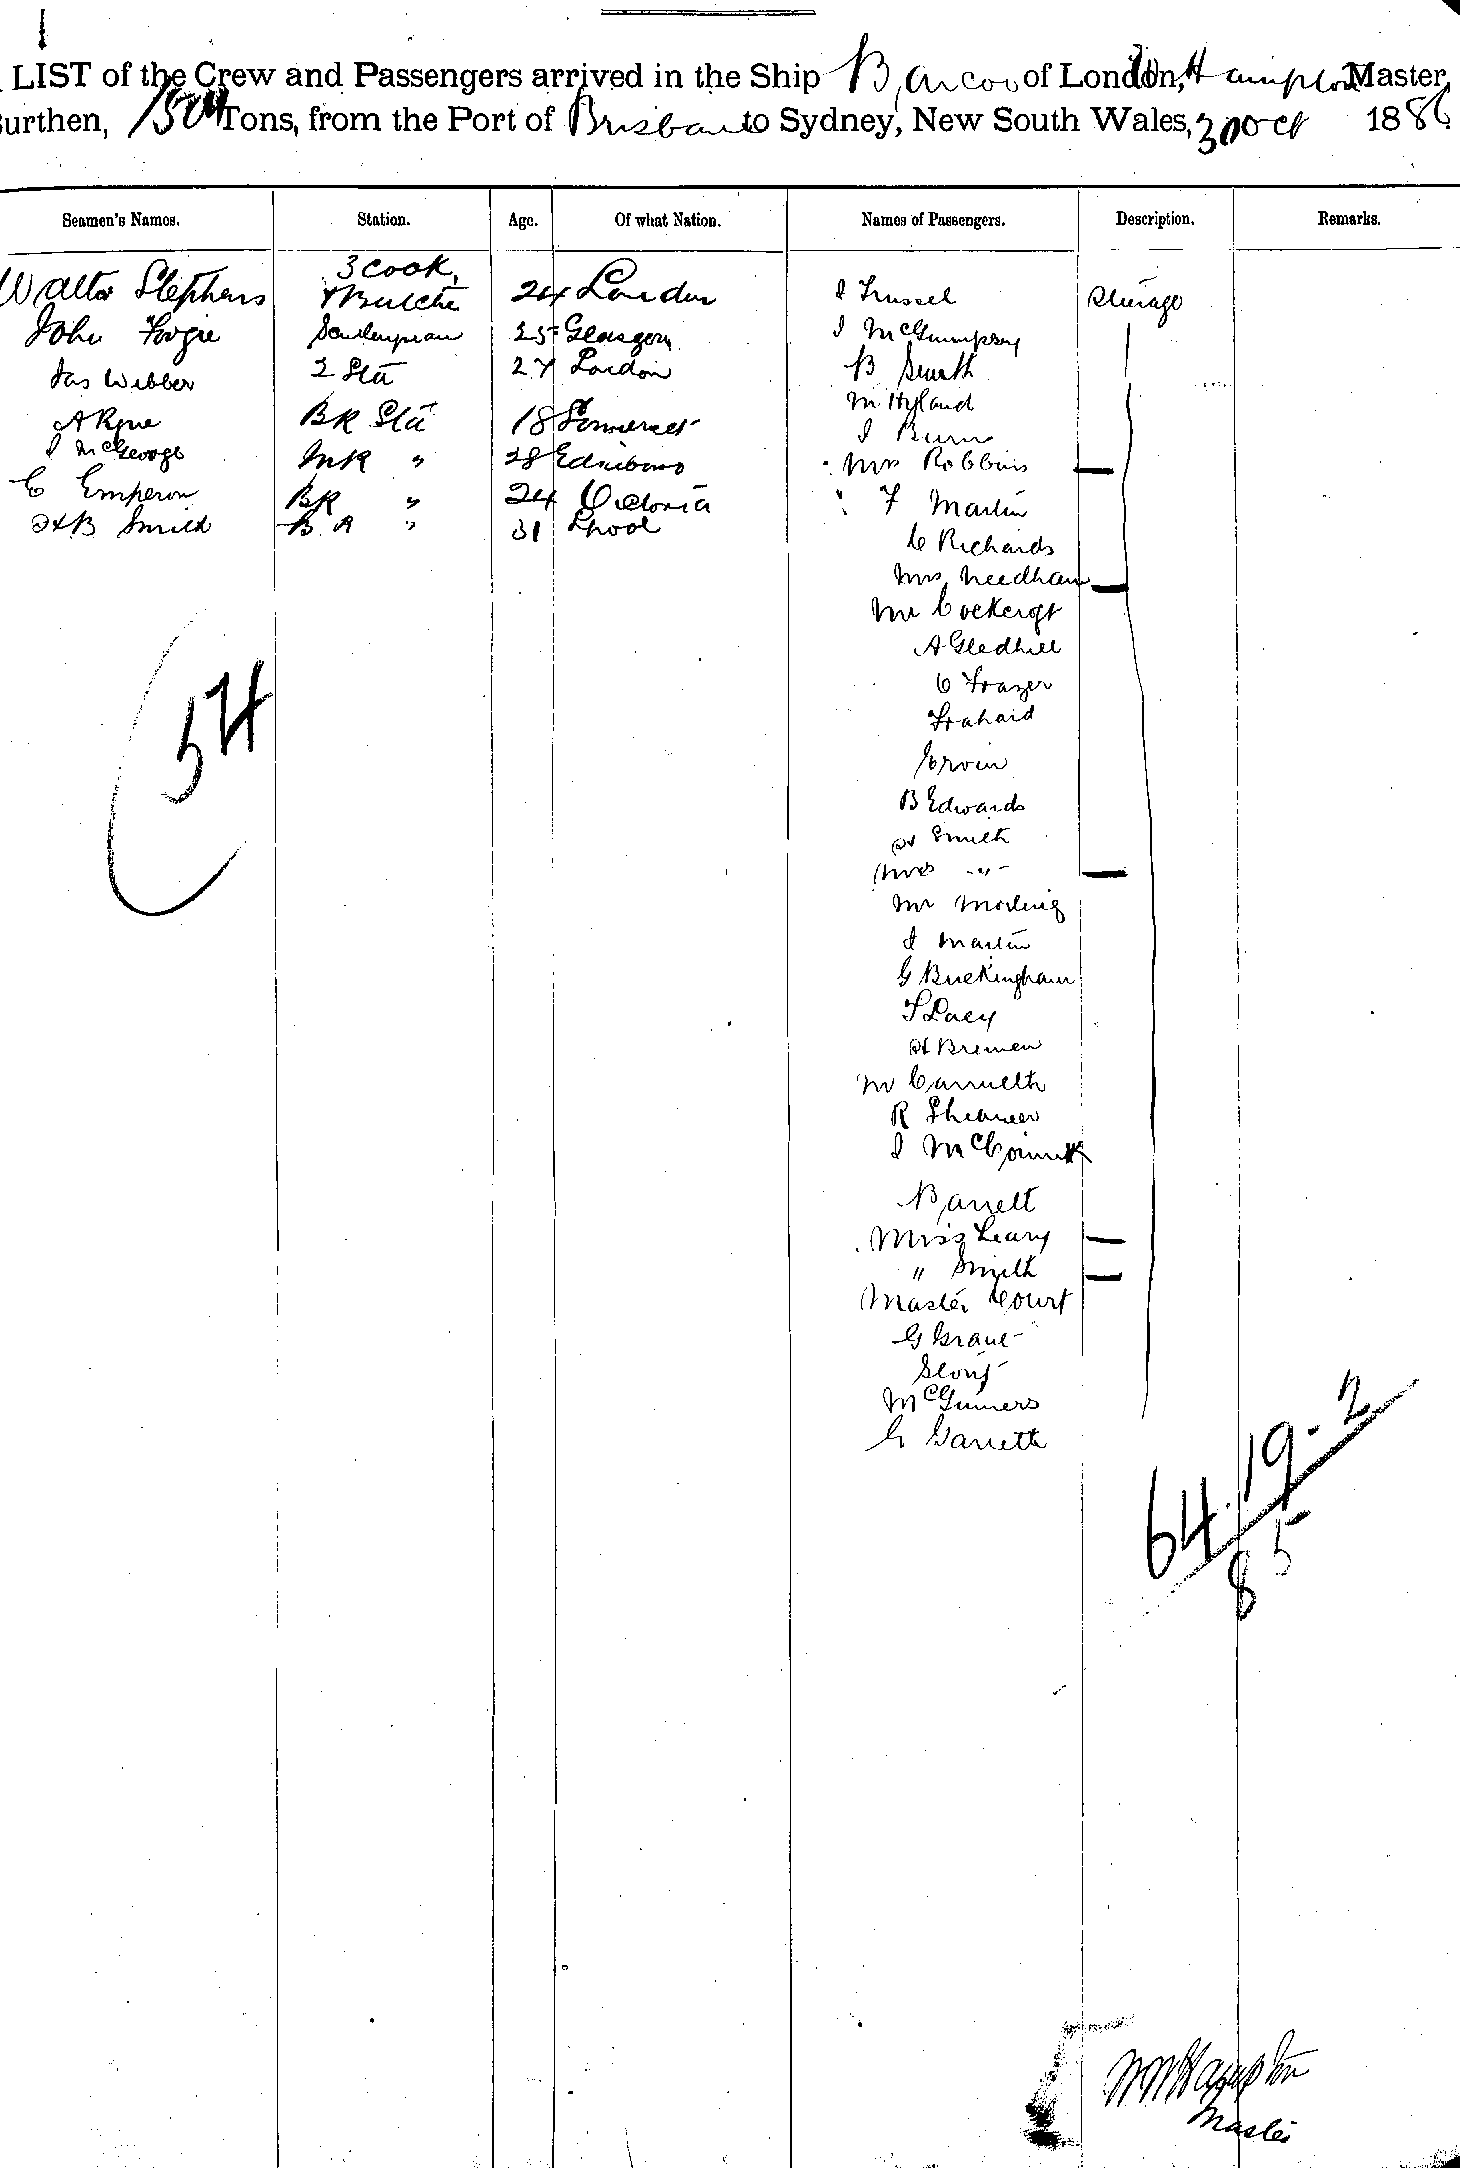 LIST of the Crew and Passengers arrived in the Ship Barcoo of London, Hampton Master,
Burthen, 1504 Tons, from the Port of Brisbane to Sydney, New South Wales, 30 Oct 1886
Seamen's Names. Station. Age. Of what Nation. Names of Passengers. Description. Remarks.
3 Cook,
Walter Stephens & Butcher 24 London J Trussel Steerage
John 25 Glasgow J
Jas Webber 2 Std 27 London B Smith
M Hyland
A Rowe BR Std 18 Somerset J Burns
J McGeorge MR " 28 Edinboro Mrs Robbins
C Emperor BR " 24 Victoria " F Martin
H B Smith B R " 31 Lpool
C Richards
Mrs Needham
Mr Cockcroft
A Gledhill
C Frazer
Ervin
B Edwards
H Smith
Mrs "
Mr
J Martin
G Buckingham
T Lacy
H Bremen
M
R Shearer
J McCormick
Barrett
Miss Leary
" Smith
Master Court
G
McGuiners
G Garrett
54
64.19-2
85
Wm Hampton
Master